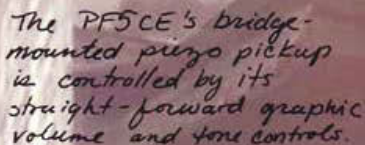 The PF5CE's bridge-
mounted piezo pickup
is controlled by its
straight-forward graphic
volume and tone controls.